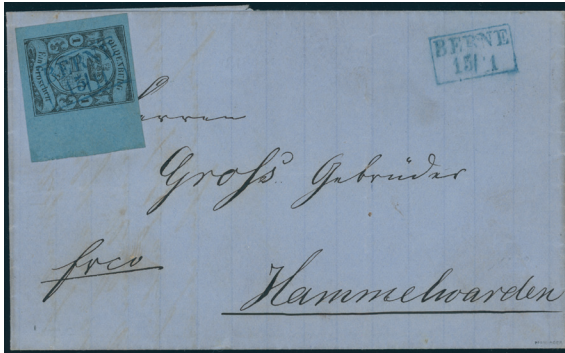 BERNE
15/1
Herren
Gross Gebrüder
frco
Hammelwarden